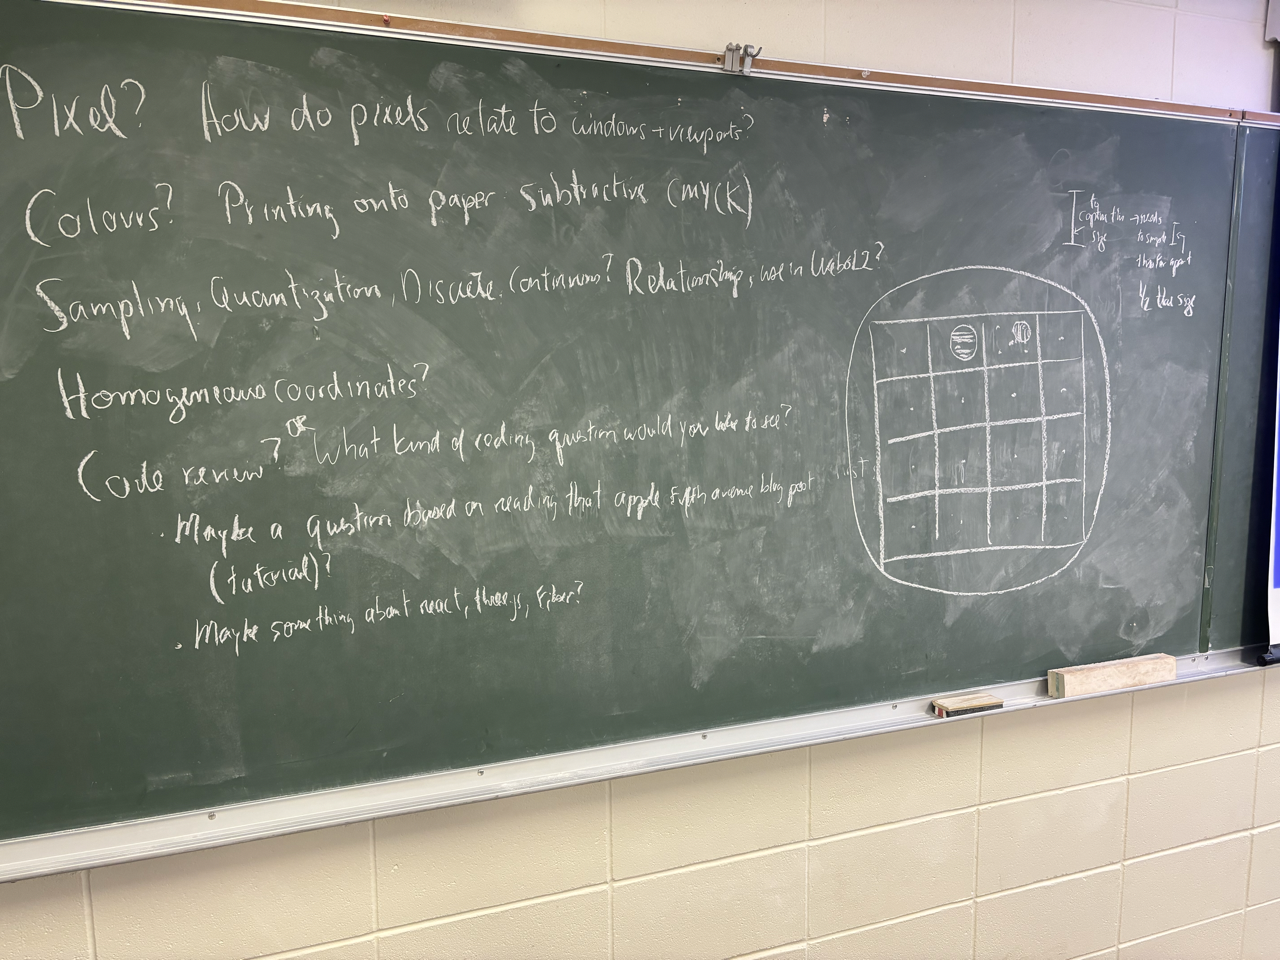 Pixel? How do pixels relate to windows + viewports?
Colours? Printing onto paper subtractive CMY(K)
Sampling, Quantization, Discrete, Continuous? Relationship, use in WebGL2?
Homogeneous coordinates?
Code review? OR What kind of coding question would you like to see?
. Maybe a question based on reading that apple fifth avenue blog post
(tutorial)?
. Maybe something about react, threejs, Fiber?
to
capture this → needs
size to sample
this far apart
1/2 this size